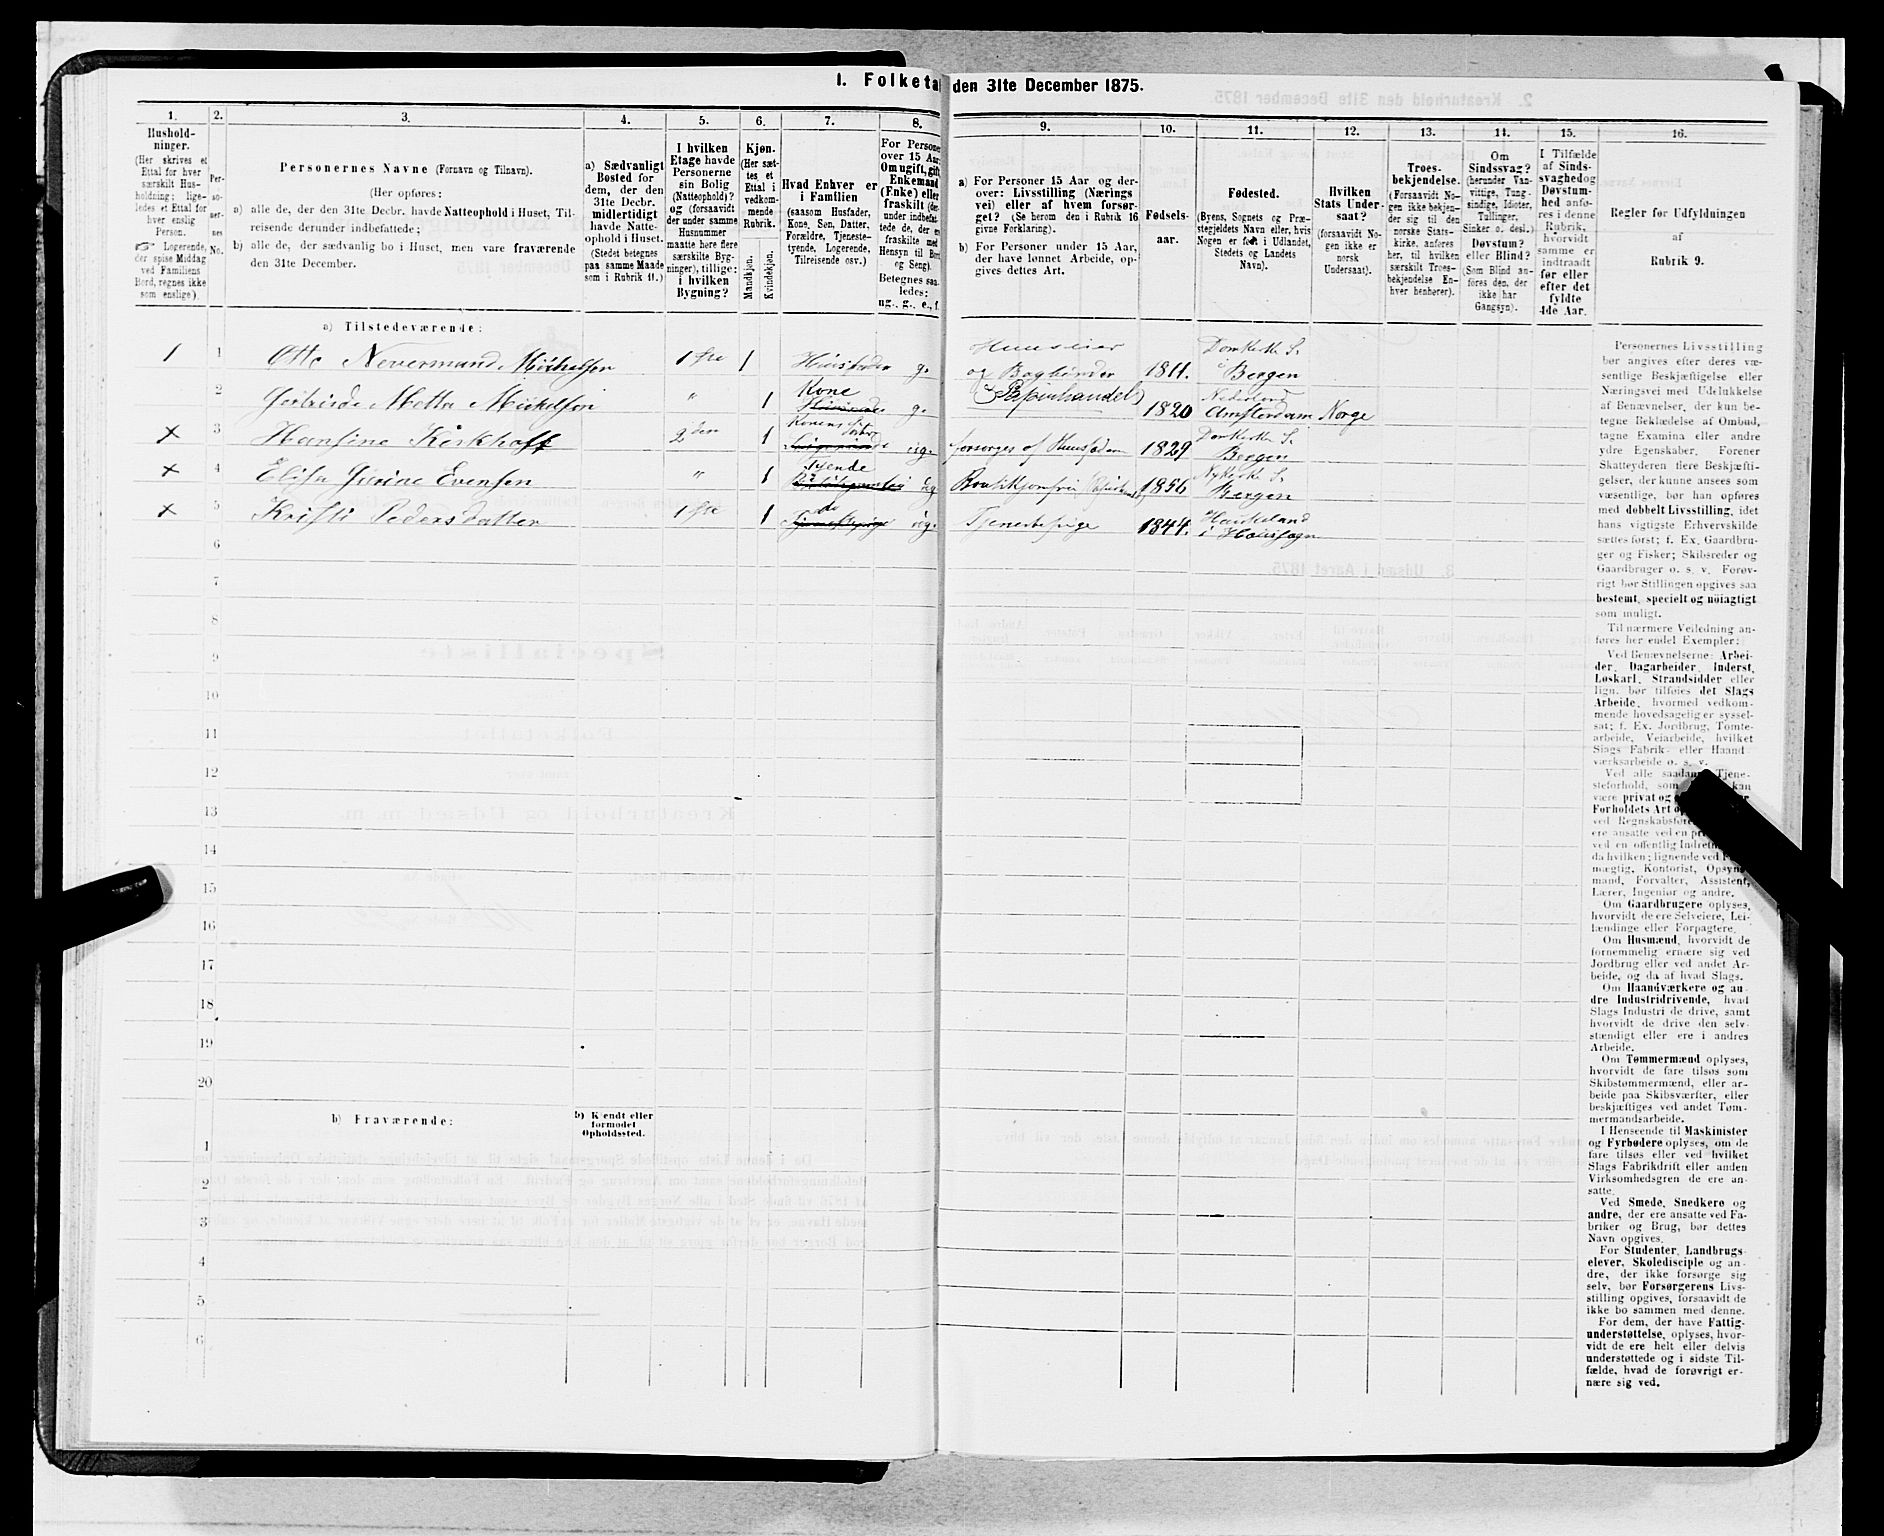 1. Folketa den 31te December 1875.
1. 2. 3. 4. 5. 6. 7. 8. 9. 10. 11. 12. 13. 14. 15. 16.
Hushold-
ninger.
(Her skrives et
Ettal for hver
særskilt Hus-
holdning; lige-
ledes et Ettal for
hver enslig
Person.
☞ Logerende,
der spise Middag
ved Familiens
Bord, regnes ikke
som enslige).
Per-
so-
ner-
nes
No.
Personernes Navne (Fornavn og Tilnavn).
(Her opføres:
a) alle de, der den 31te Decbr. havde Natteophold i Huset, Til-
reisende derunder indbefattede;
b) alle de, der sædvanlig bo i Huset, men vare fraværende
den 31te December.
a) Sædvanligt
Bosted for
dem, der den
31te Decbr.
midlertidigt
havde Natte-
ophold i Huset.
(Stedet betegnes
paa samme Maade
som i Rubrik 11.)
I hvilken
Etage havde
Personerne
sin Bolig
(Natteophold)?
og (forsaavidt
der under samme
Husnummer
maatte høre flere
særskilte Byg-
ninger), tillige:
i hvilken
Bygning?
Kjøn.
(Her sæt-
tes et
Ettal i
vedkom-
mende
Rubrik.
Mandkjøn.
Kvindekjøn.
Hvad Enhver er
i Familien
(saasom Husfader,
Kone, Søn, Datter,
Forældre, Tjeneste-
tyende, Logerende,
Tilreisende osv.)
For Persone
over 15 Aar
Om ugift, gift
Enkemand
(Enke) eller
fraskilt (der-
under indbefat-
tede de, der er
fraskilte med
Hensyn til Bord
og Seng).
Betegnes saa-
ledes:
ug., g., e., f.
a) For Personer 15 Aar og der-
over: Livsstilling (Nærings
vei) eller af hvem forsør-
get? (Se herom den i Rubrik 16
givne Forklaring).
b) For Personer under 15 Aar,
der have lønnet Arbeide, op-
gives dettes Art.
Fødsels-
aar.
Fødested.
(Byens, Sognets og Præ-
stegjeldets Navn eller, hvis
Nogen er født i Udlandet,
Stedets og Landets
Navn).
Hvilken
Stats Under-
saat?
(forsaavidt No-
gen ikke er
norsk
Undersaat).
Troes-
bekjendelse.
(Forsaavidt No-
gen ikke bekjen-
der sig til den
norske Stats-
kirke, anføres
her, til hvilken
særskilt Troes-
bekjendelse En-
hver henhører).
Om
Sindssvag?
(herunder Van-
vittige, Tung-
sindige, Idioter,
Tullinger,
Sinker o. desl.)
Døvstum?
eller Blind?
(Som Blind an-
føres den, der
ikke har
Gangsyn).
I Tilfælde
af Sinds-
svaghed og
Døvstum-
hed anfø-
res i denne
Rubrik,
hvorvidt
samme er
indtraadt
før eller
efter det
fyldte
4de Aar.
Regler for Udfyldningen
af
Rubrik 9.
a) Tilstedeværende:
1 1 Otto Nevermand Michelsen 1 ste 1 Huusfader g. Huuseier og Bogbinder 1811. Domkirke S. i Bergen
2 Mette Michelsen " 1 Kone g. Papirhandel 1820 Nederland Amsterdam Norge
x 3 Hansine Kirkhoff 2 den 1 Konens Søster ug. forsørges af Huusfaderen 1829 Domkirke S. Bergen
x 4 Elisa Evensen " 1 Tyende ug Boutikjomfru 1856 Nykirke S. Bergen
x 5 Kristi Pedersdatter 1 ste 1 do ug. Tjenestepige 1844. Haukeland i Haussogn
6
7
8
9
10
11
12
13
14
15
16
17
18
19
20
b) Fraværende:
b) Kjendt eller
formodet
Opholdssted.
1
2
3
4
5
6
Personernes Livsstilling
bør angives efter deres væ-
sentlige Beskjæftigelse eller
Næringsvei med Udelukkelse
af Benævnelser, der kun be-
tegne Beklædelse af Ombud,
tagne Examina eller andre
ydre Egenskaber. Forener
Skatteyderen flere Beskjæfti-
gelser, der kunne ansees som
væsentlige, bør han opføres
med dobbelt Livsstilling, idet
hans vigtigste Erhvervskilde
sættes først; f. Ex. Gaardbru-
ger og Fisker; Skibsreder og
Gaardbruger o. s. v. Forøv-
rigt bør Stillingen opgives saa
bestemt, specielt og nøiagtigt
som muligt.
Til nærmere Veiledning an-
føres her endel Exempler:
Ved Benævnelserne: Arbei-
der, Dagarbeider, Inderst,
Løskarl, Strandsidder eller
lign. bør tilføies det Slags
Arbeide, hvormed vedkom-
mende hovedsagelig er syssel-
sat; f. Ex. Jordbrug, Tomte-
arbeide, Veiarbeide, hvilket
Slags Fabrik- eller Haand
værksarbeide o. s. v.
Ved alle saadanne Tjene-
steforhold, som kan
være privat og
Forholdets Art
ved Regnskabsføre
ere ansatte ved en pri
ved en offentlig Indretn
da hvilken; lignende ved F
mægtig, Kontorist, Opsyns
mand, Forvalter, Assistent,
Lærer, Ingeniør og andre.
Om Gaardbrugere oplyses,
hvorvidt de ere Selveiere, Lei-
lændinge eller Forpagtere.
Om Husmænd, hvorvidt de
fornemmelig ernære sig ved
Jordbrug eller ved andet Ar-
beide, og da af hvad Slags.
Om Haandværkere og an
dre Industridrivende, hvad
Slags Industri de drive, samt
hvorvidt de drive den selv-
stændigt eller ere i andres
Arbeide.
Om Tømmermænd oplyses,
hvorvidt de fare tilsøs som
Skibstømmermænd, eller ar-
beide paa Skibsværfter, eller
beskjæftiges ved andet Tøm-
mermandsarbeide.
I Henseende til Maskinister
og Fyrbødere oplyses, om de
fare tilsøs eller ved hvilket
Slags Fabrikdrift eller anden
Virksomhedsgren de ere an-
satte.
Ved Smede, Snedkere og
andre, der ere ansatte ved Fa-
briker og Brug, bør dettes
Navn opgives.
For Studenter, Landbrugs-
elever, Skoledisciple og an-
dre, der ikke forsørge sig
selv, bør Forsørgerens Livs-
stilling opgives, forsaavidt de
ikke bo sammen med denne.
For dem, der have Fattig-
understøttelse, oplyses, hvor-
vidt de ere helt eller delvis
understøttede og i sidste Til-
fælde, hvad de forøvrigt er-
nære sig ved.